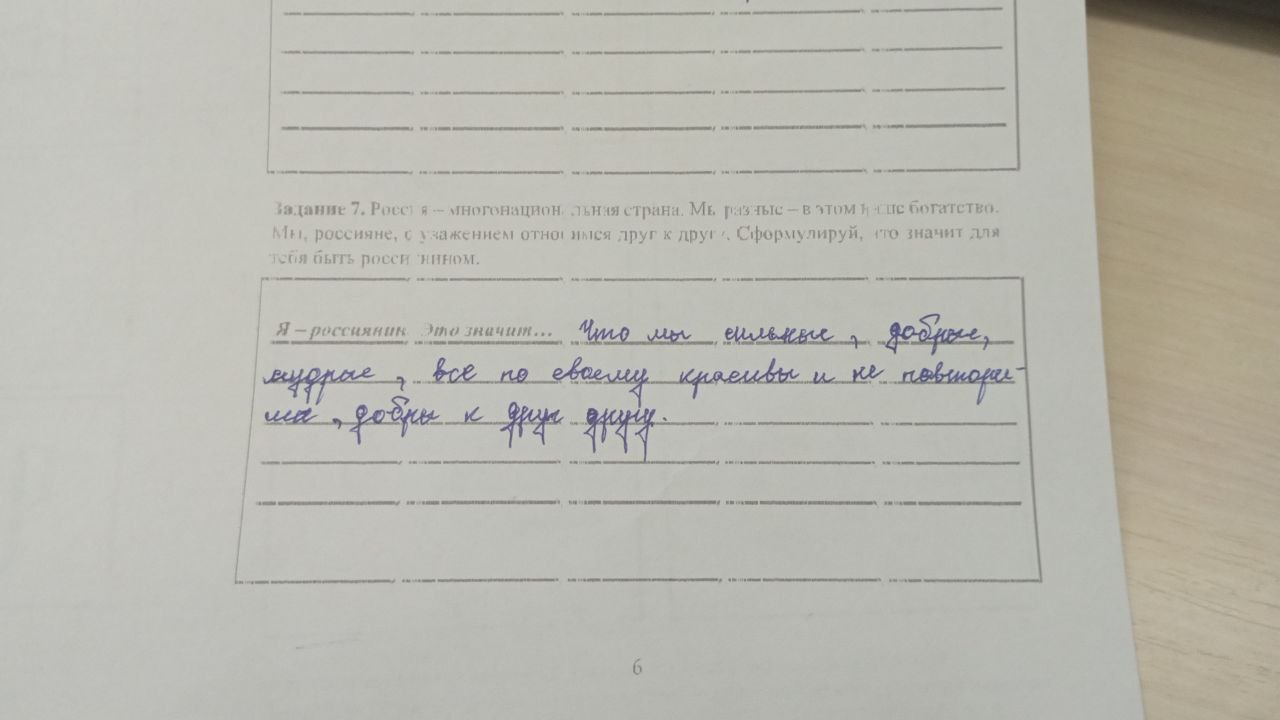 Задание 7. Россия – многонациональная страна. Мы разные – в этом наше богатство.
Мы, россияне, с уважением относимся друг к другу. Сформулируй, что значит для
тебя быть россиянином.
Я – россиянин. Это значит... Что мы сильные, добрые,
мудрые, все по своему красивы и не повтори-
мы, добры к друг другу.
6